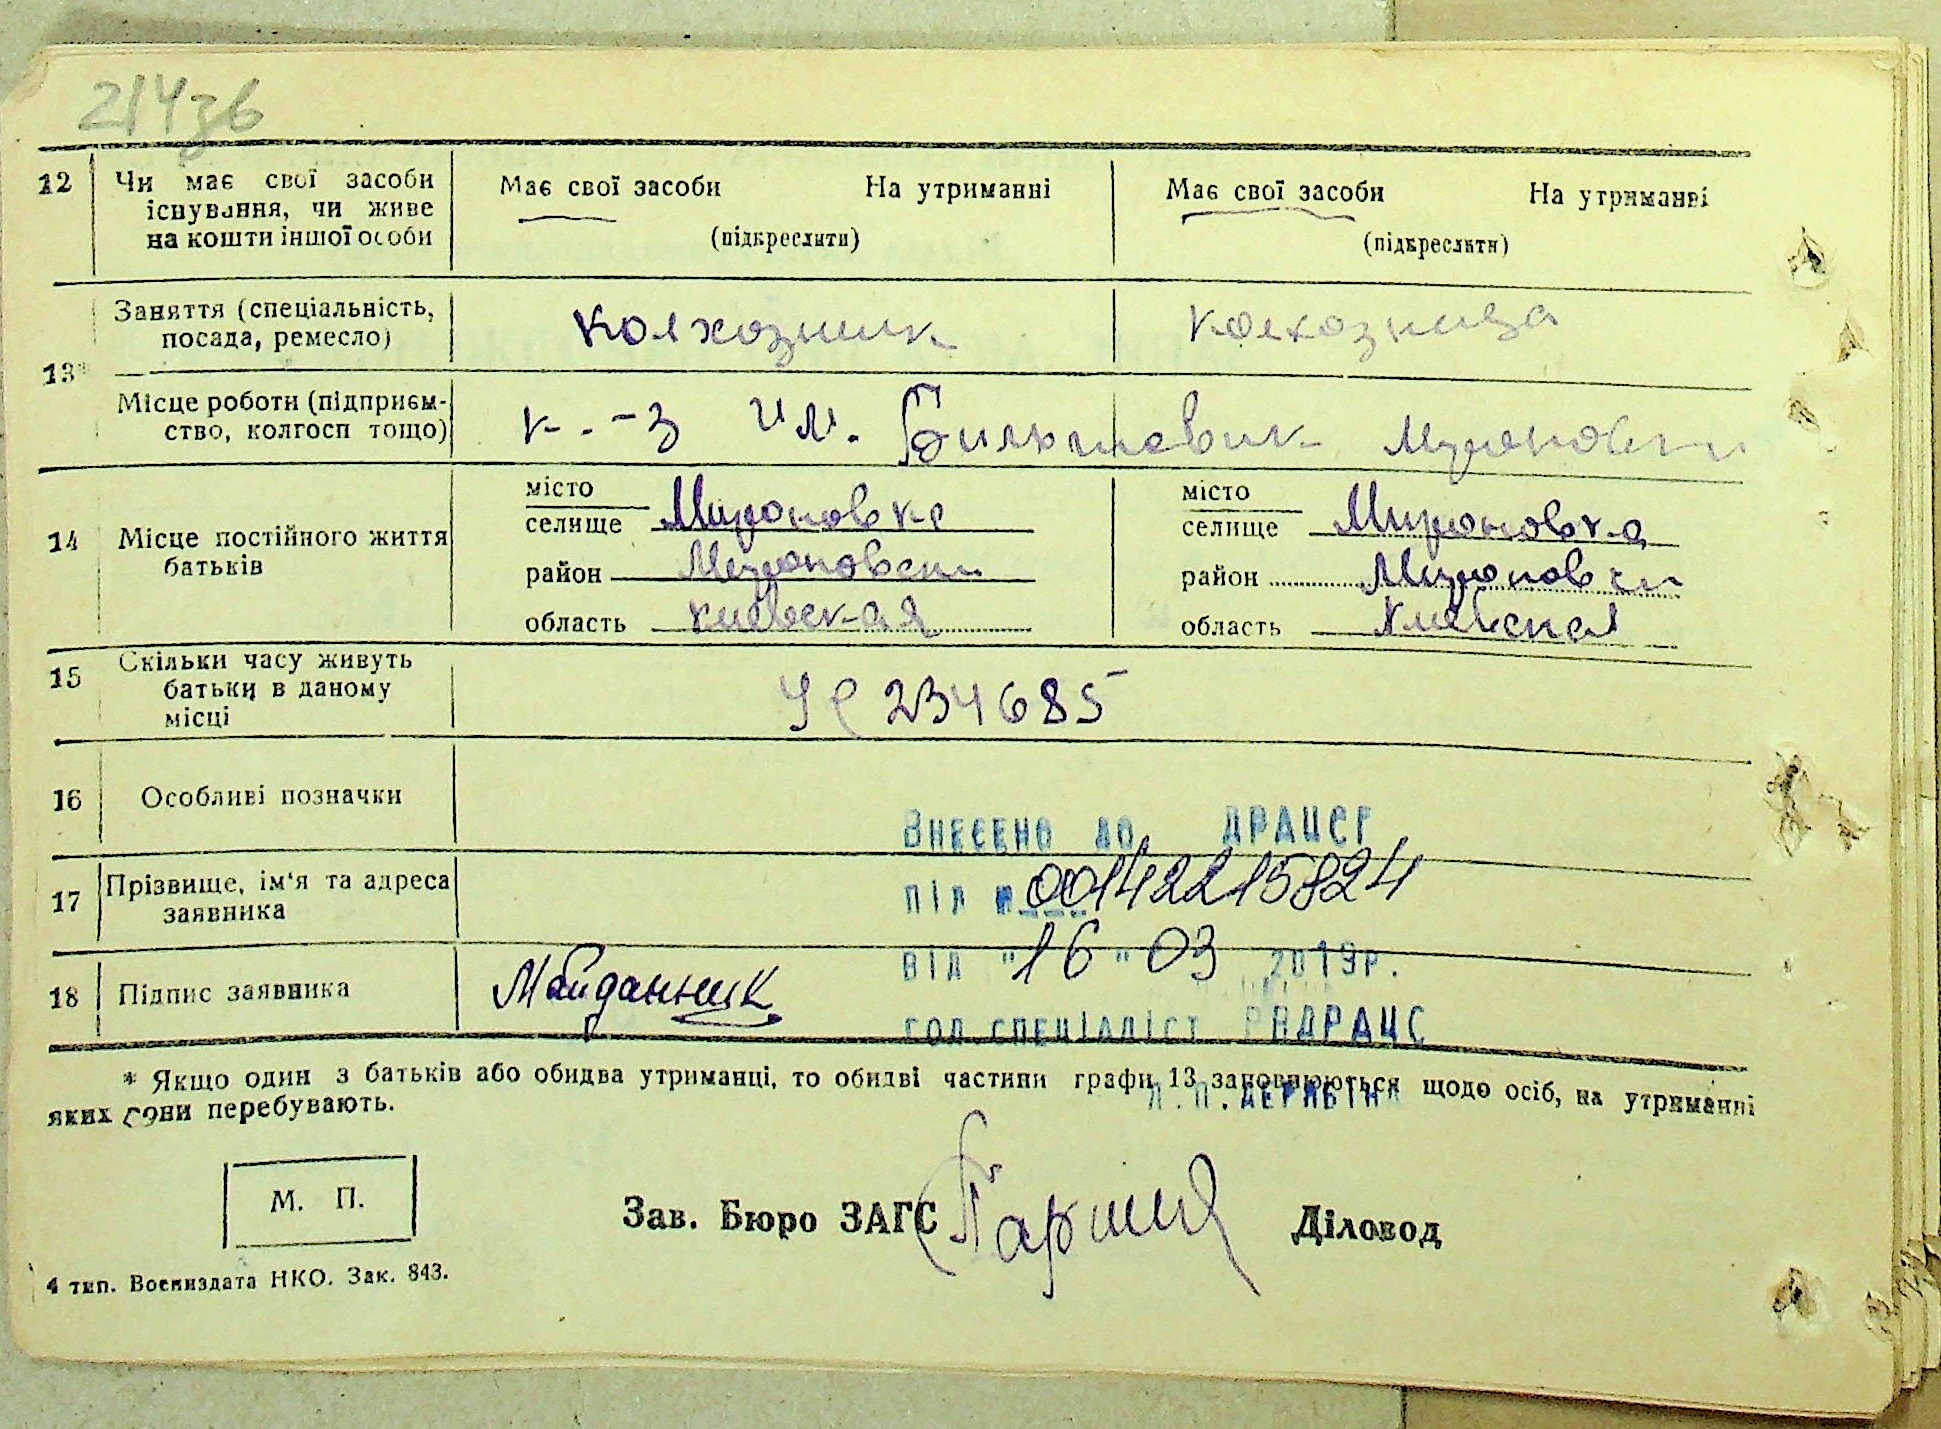 214зв
12 Чи має свої засоби існування, чи живе на кошти іншої особи
Має свої засоби На утриманні
(підкреслити)
Має свої засоби На утриманні
(підкреслити)
13*
Заняття (спеціальність, посада, ремесло)
колхозник
колхозница
Місце роботи (підприєм-
ство, колгосп тощо)
к.-з им. Більшевик Мироновки
14 Місце постійного життя батьків
місто
селище Мироновка
район Мироновски
область Киевская
місто
селище Мироновка
район Мироновски
область Киевская
15 Скільки часу живуть батьки в даному місці
234685
16 Особливі позначки
ВНЕСЕНО ДО ДРАЦСГ
17 Прізвище, ім'я та адреса заявника
ПІД № 00142215824
ВІД "16" 03 2019р.
18 Підпис заявника
Майданник
ГОЛ.СПЕЦІАЛІСТ РВДРАЦС
* Якщо один з батьків або обидва утриманці, то обидві частини графи 13 заповнюються щодо осіб, на утриманні
яких вони перебувають.
Л.П.ДЕРЯБІНА
М. П.
Зав. Бюро ЗАГС
Діловод
4 тип. Воениздата НКО. Зак. 843.